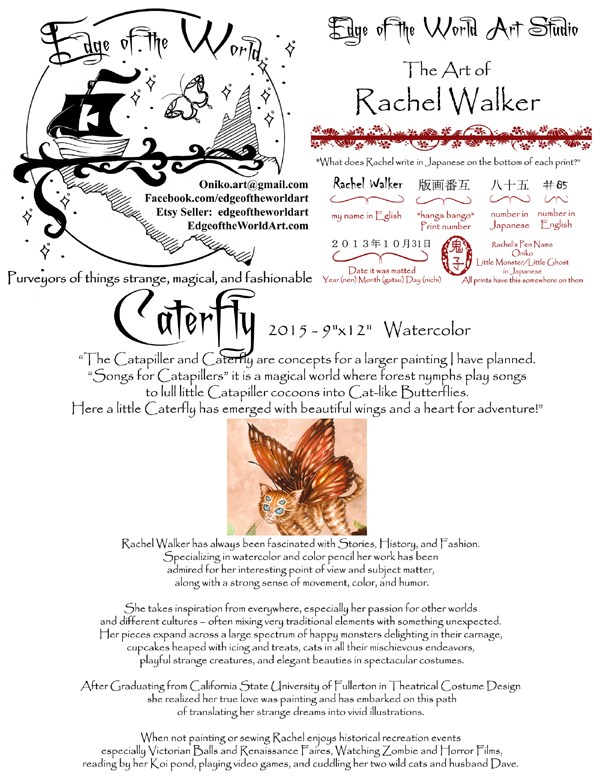 Edge of the World
Oniko.art@gmail.com
Facebook.com/edgeoftheworldart
Etsy Seller: edgeoftheworldart
EdgeoftheWorldArt.com
Purveyors of things strange, magical, and fashionable
Edge of the World Art Studio
The Art of
Rachel Walker
"What does Rachel write in Japanese on the bottom of each print?"
Rachel Walker 版画番互 八十五 # 85
my name in Eglish "hanga bango" Print number number in Japanese number in English
2013年10月31日
Date it was matted
Year (nen) Month (gatau) Day (nichi)
鬼子
Rachel's Pen Name
Oniko
Little Monster/Little Ghost
in Japanese
All prints have this somewhere on them
Caterfly 2015 - 9"x12" Watercolor
"The Catapiller and Caterfly are concepts for a larger painting I have planned.
"Songs for Catapillers" it is a magical world where forest nymphs play songs
to lull little Catapiller cocoons into Cat-like Butterflies.
Here a little Caterfly has emerged with beautiful wings and a heart for adventure!"
Rachel Walker has always been fascinated with Stories, History, and Fashion.
Specializing in watercolor and color pencil her work has been
admired for her interesting point of view and subject matter,
along with a strong sense of movement, color, and humor.
She takes inspiration from everywhere, especially her passion for other worlds
and different cultures – often mixing very traditional elements with something unexpected.
Her pieces expand across a large spectrum of happy monsters delighting in their carnage,
cupcakes heaped with icing and treats, cats in all their mischievous endeavors,
playful strange creatures, and elegant beauties in spectacular costumes.
After Graduating from California State University of Fullerton in Theatrical Costume Design
she realized her true love was painting and has embarked on this path
of translating her strange dreams into vivid illustrations.
When not painting or sewing Rachel enjoys historical recreation events
especially Victorian Balls and Renaissance Faires, Watching Zombie and Horror Films,
reading by her Koi pond, playing video games, and cuddling her two wild cats and husband Dave.